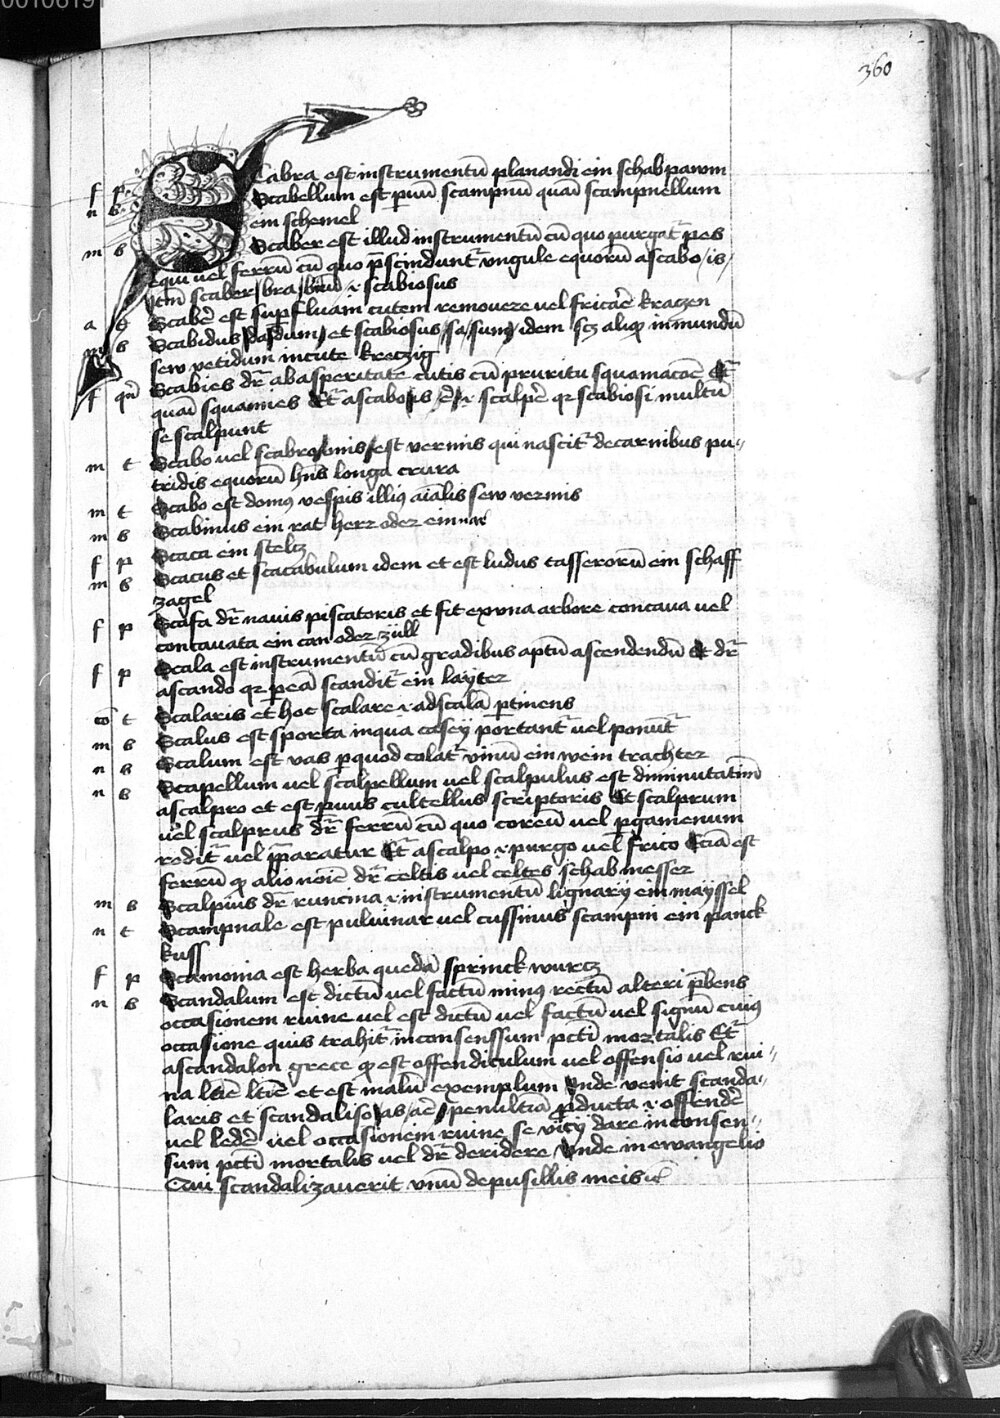 00106191
360
f p Scabra est instrumentū planandi ein schabpawm
n b Scabellum est pͣuū scampnū quasi scampnellum
ein schemel
m b Scaber est illud instrumentū cū quo purgat᷑ pes
equi vel ferrū cū quo p̄scindunt᷑ vngule equorū a scabo / is /
Itm̄ scaber / bra / brum ⁊ scabiosus
a Scabē est supfluam cutem remouere vel fricare kraczen
b Scabidus / da / dum / et scabiosus / sa / sum / idem sꝫ aliqͦ inmundū
sew vetidum in cute kreczig
f qn̄ Scabies dr̄ ab asperitate cutis cū pruritu squamacōe Et̄
quasi squamies Et̄ a scabo is ⁊ scalpē qr scabiosi multū
se scalpunt
m t Scabo vel scabro / onis / est vermis qui nascit᷑ de carnibus pu-
tridis equorū hn̄s longa crura
m t Scabo est domꝰ vespis illiꝰ aīalis sew vermis
m b Scabinus ein rat herr oder ein
f p Scaca ein stelcz
m b Scacus et scacabulum idem et est ludus tasserorū ein schaff
zagel
f p Scafa dr̄ nauis piscatoris et fit ex vna arbore concaua vel
concauata ein can oder züll
f p Scala est instrumentū cū gradibus aptū ascendendū Et dr̄
a scando qr p eā scandit᷑ ein layter
cō t Scalaris et hoc scalare ⁊ ad scalā p̱tinens
m b Scalus est sporta in qua casey portant᷑ vel ponūt᷑
n b Scalum est vas p̱ quod colat᷑ vinū ein wein trachter
n b Scapellum vel scalpellum vel scalpulus est diminutatiuū
a scalpro et est pͣuus cultellus scriptoris Et scalprum
vel scalprus dr̄ ferrū cū quo coreū vel p̱gamenum
redit᷑ vel p̄paratur Et̄ a scalpo ⁊ purgo vel frico Eciā est
ferrū qͦ alio noīe dr̄ celtis vel celtes schab messer
m b Scalpius dr̄ runcina ⁊ instrumentū lignarÿ ein mayssel
n t Scampnale est puluinar vel cussinus scampni ein panck
kuss
f p Scamonia est herba quedā sprinck wurcz
n b Scandalum est dictū vel factū minꝰ rectū alteri p̄bens
occasionem ruine vel est dictū vel factū vel signū cuiꝰ
occasione quis trahit᷑ in consenssum pctī mortalis Et̄
a scandalon grece qͦ est offendiculum vel offensio vel rui-
na et est malū exemplum vnde venit scanda-
laris et scandaliso / as / aē / penultīa p̱ducta ⁊ offendē
vel ledē vel occasionem ruine se vicÿ dare in consen-
sum pctī mortalis vel dr̄ deridere vnde in ewangelio
Qui scandalizauerit vnū de pusillis meis ⁊c